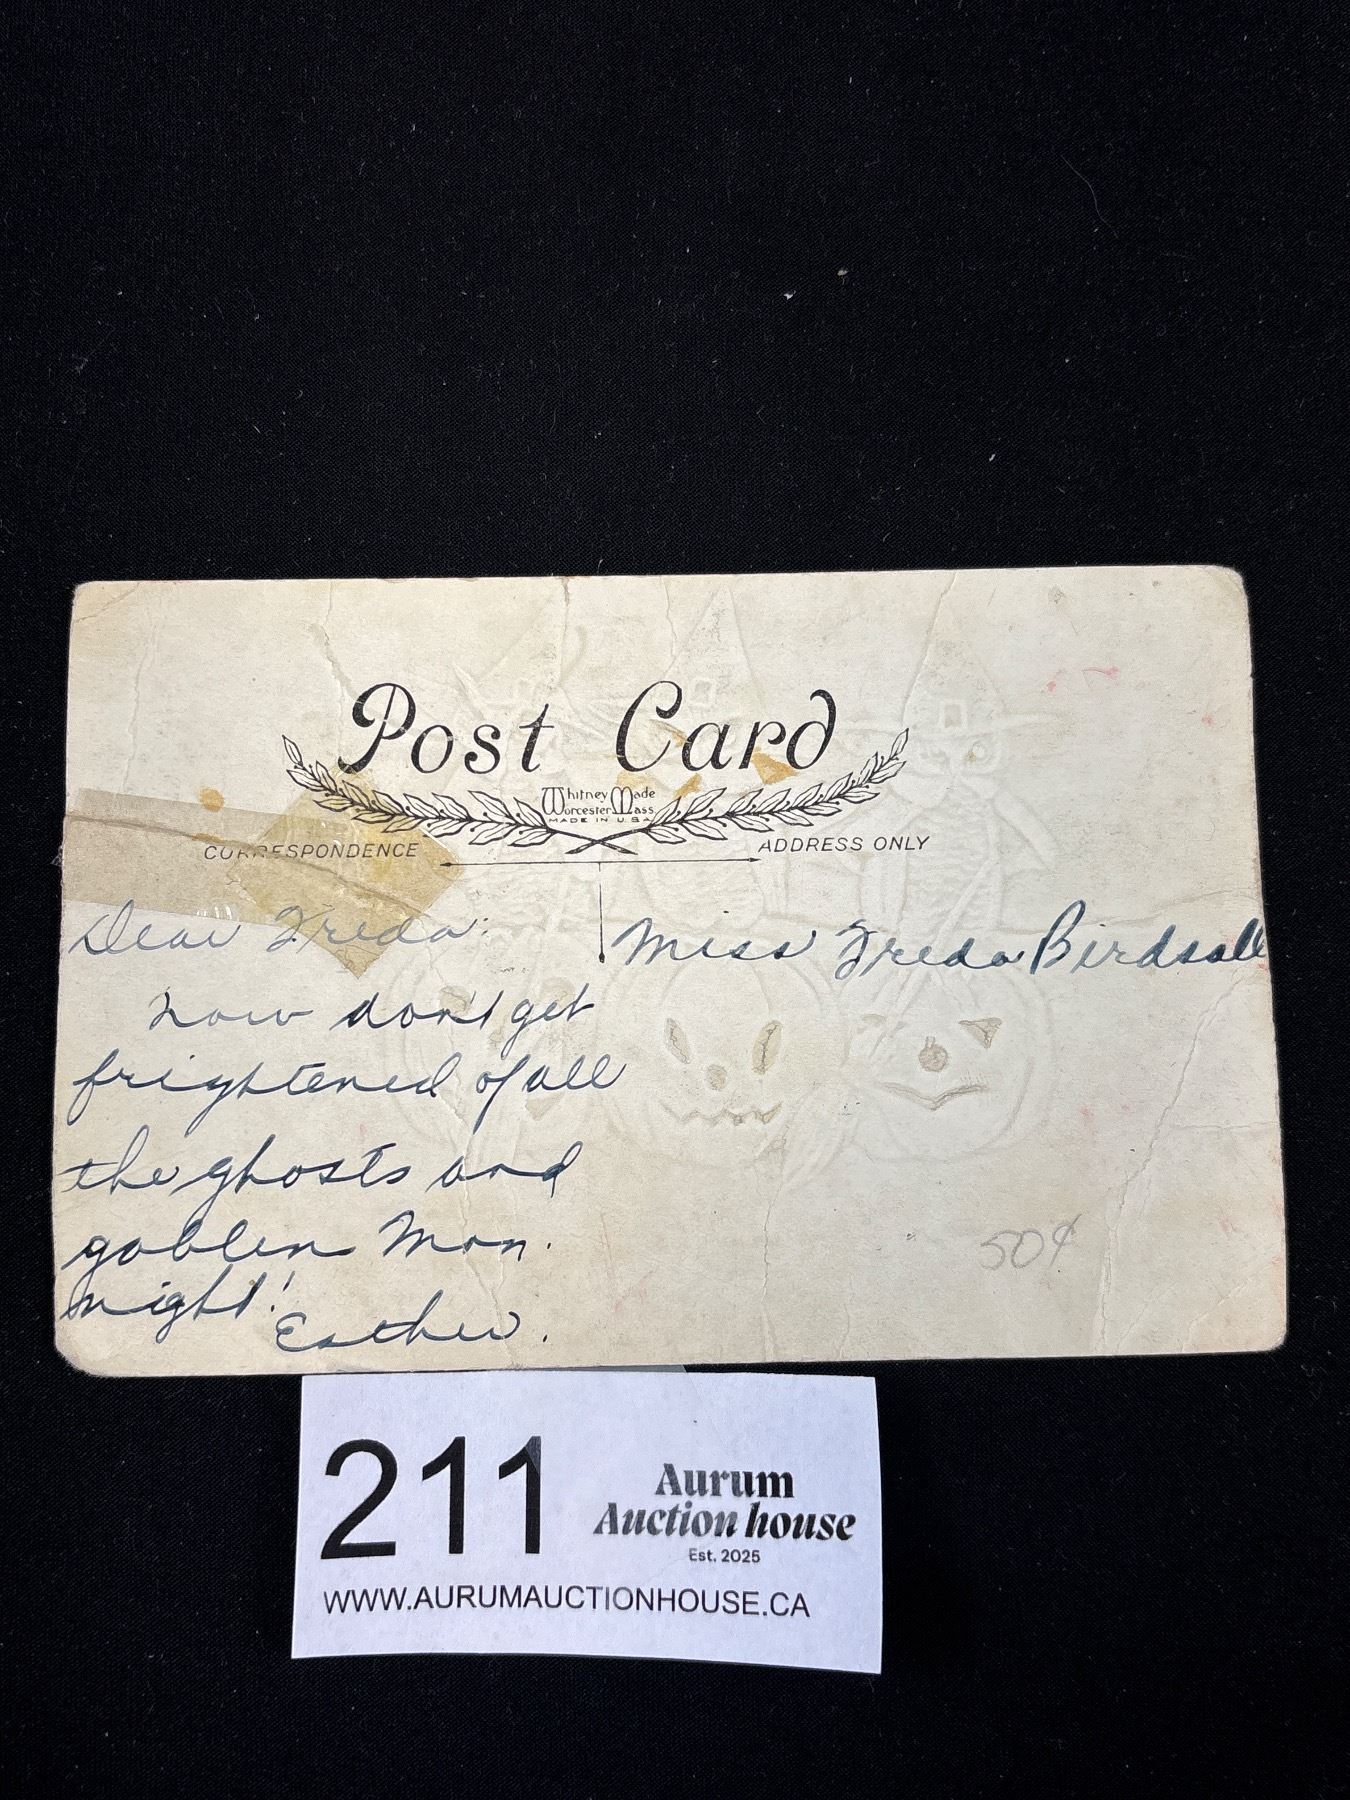 Post Card
Whitney Made
Worcester Mass.
MADE IN U.S.A.
CORRESPONDENCE
ADDRESS ONLY
Dear Freda:
now don't get
frightened of all
the ghosts and
goblin Mon.
night!
Esther.
Miss Freda Birdsall
50¢
211
Aurum
Auction house
Est. 2025
WWW.AURUMAUCTIONHOUSE.CA